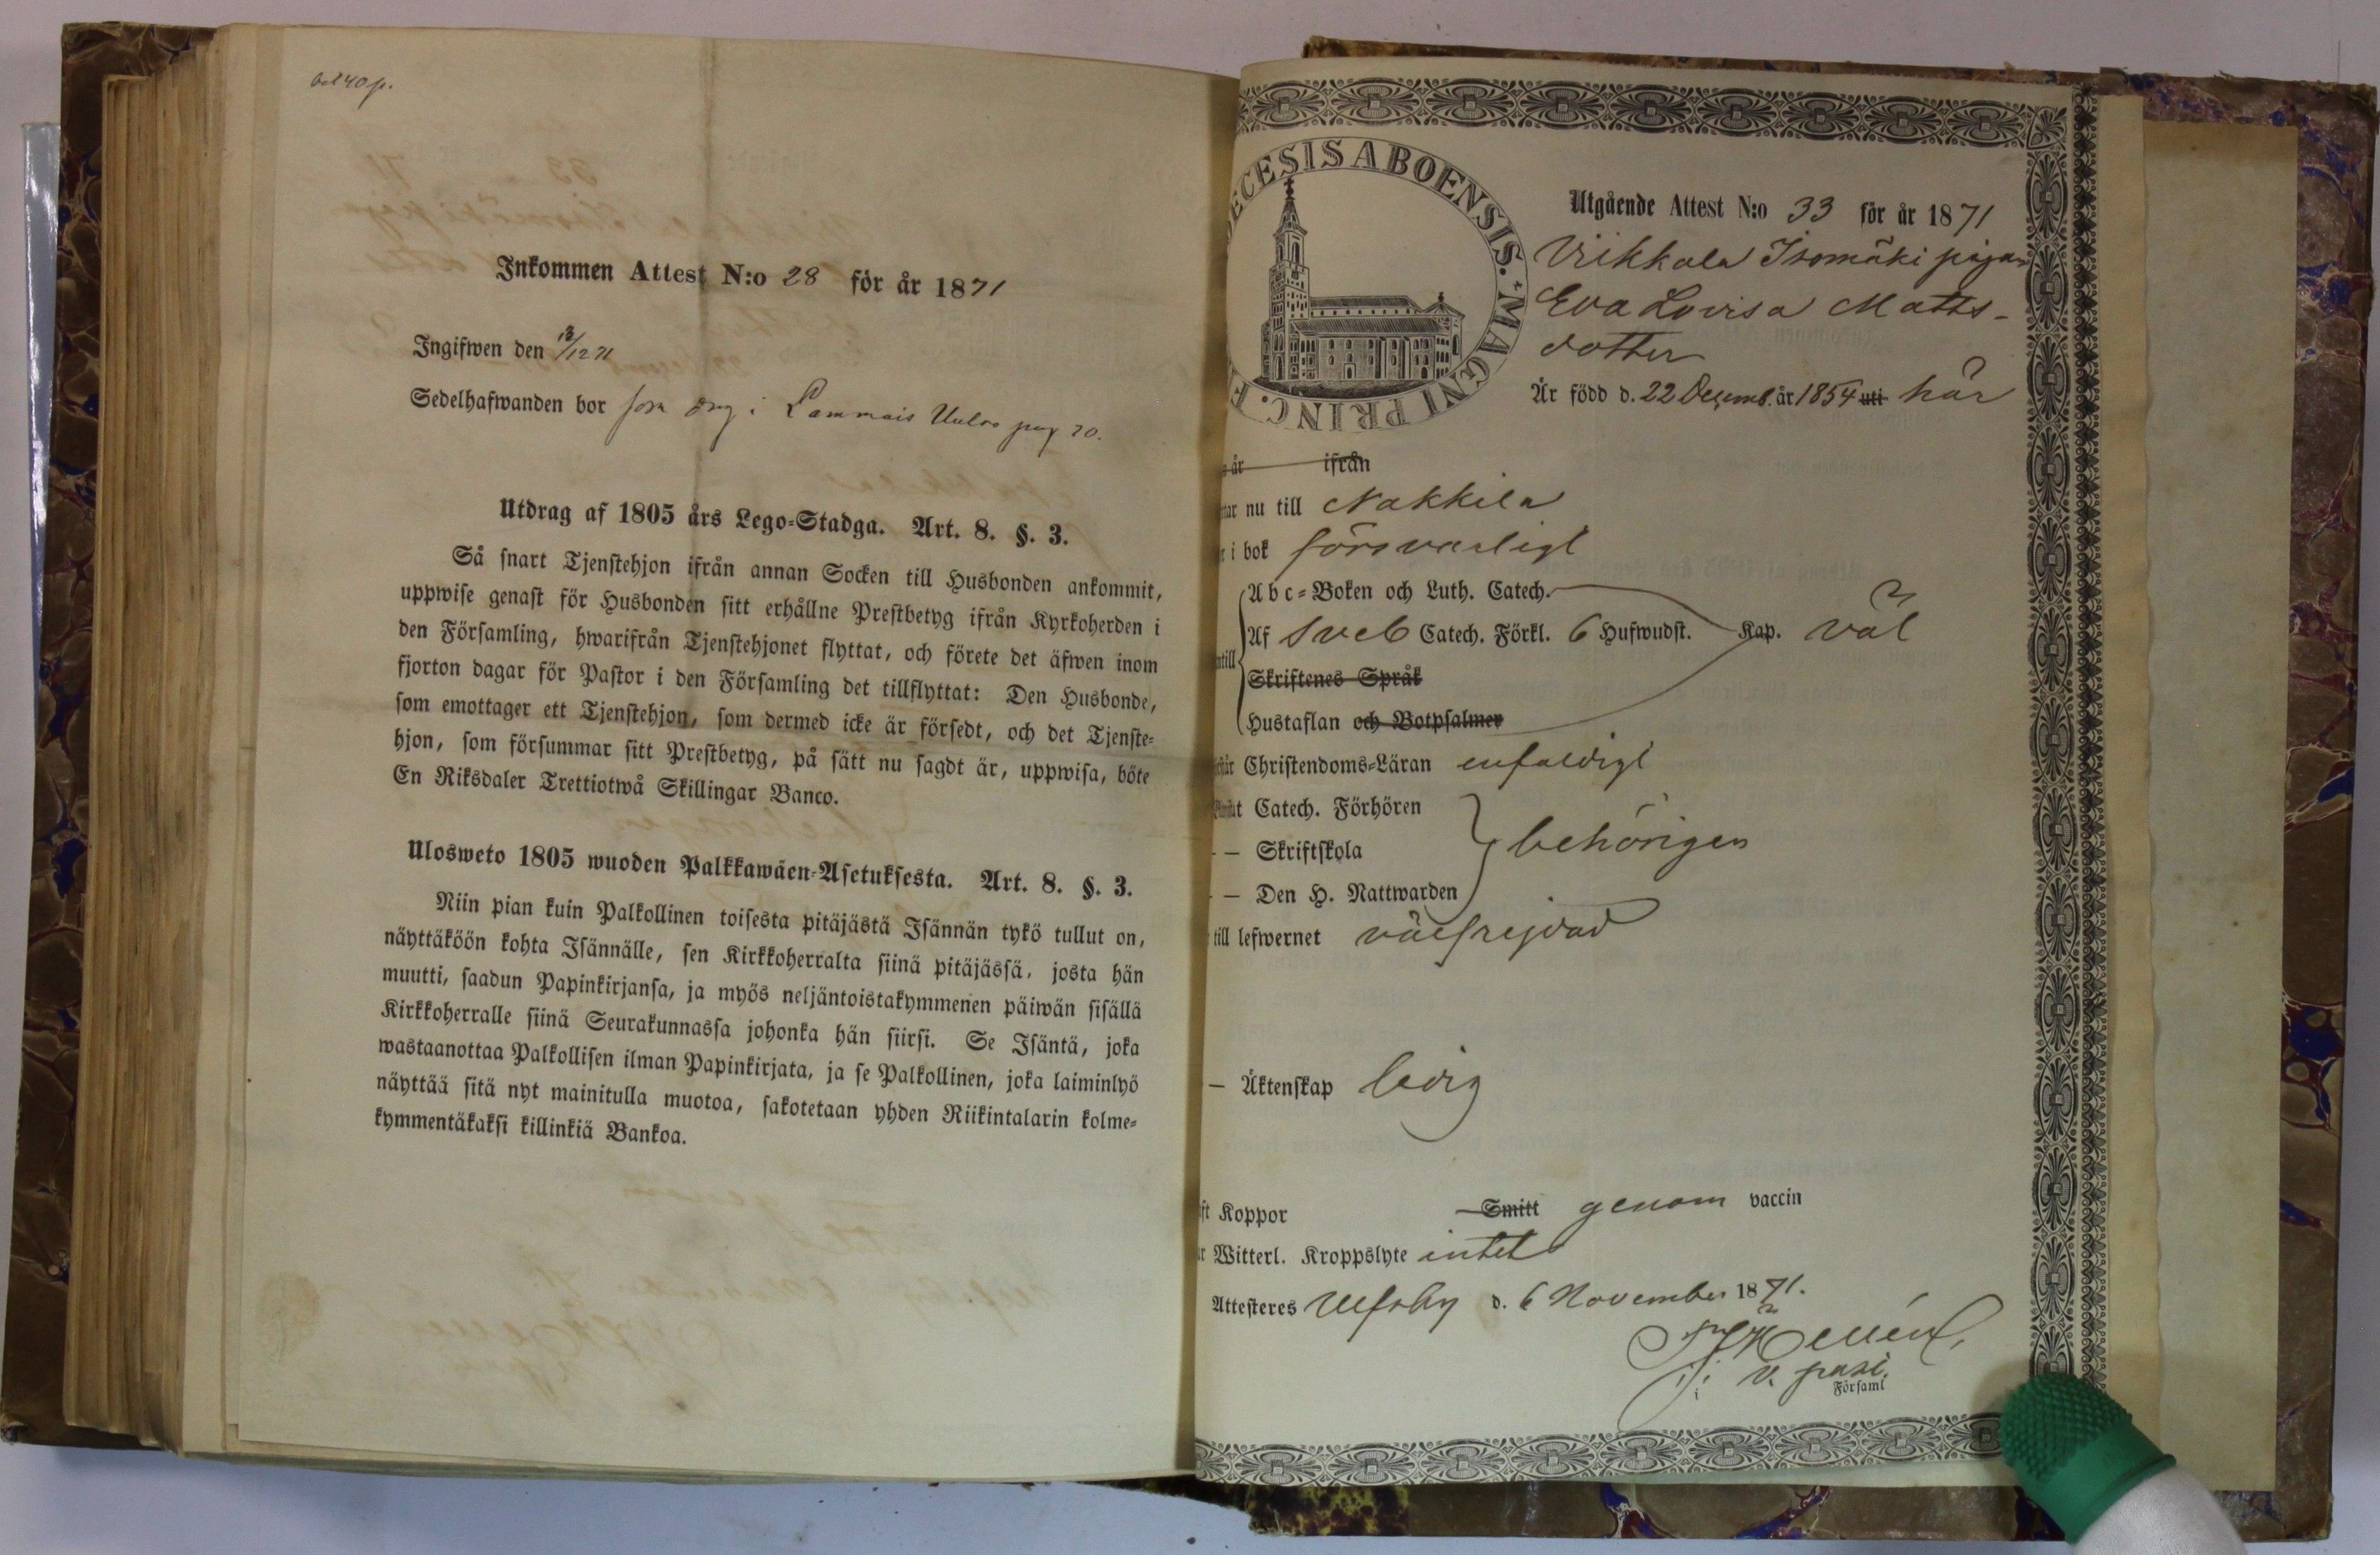 Inkommen Attest N:o 28 för år 1871
Ingifwen den /12 71
Sedelhafwanden bor som i Lammais pag 20.
Utdrag af 1805 års Lego-Stadga. Art. 8. §. 3.
Så snart Tjenstehjon ifrån annan Socken till Husbonden ankommit,
uppwise genast för Husbonden sitt erhållne Prestbetyg ifrån Kyrkoherden i
den Församling, hwarifrån Tjenstehjonet flyttat, och förete det äfwen inom
fjorton dagar för Pastor i den Församling det tillflyttat: Den Husbonde,
som emottager ett Tjenstehjon, som dermed icke är försedt, och det Tjenste-
hjon, som försummar sitt Prestbetyg, på sätt nu sagdt är, uppwisa, böte
En Riksdaler Trettiotwå Skillingar Banco.
Ulosweto 1805 wuoden Palkkawäen-Asetuksesta. Art. 8. §. 3.
Niin pian kuin Palkollinen toisesta pitäjästä Isännän tykö tullut on,
näyttäköön kohta Isännälle, sen Kirkkoherralta siinä pitäjässä, josta hän
muutti, saadun Papinkirjansa, ja myös neljäntoistakymmenen päiwän sisällä
Kirkkoherralle siinä Seurakunnassa johonka hän siirsi. Se Isäntä, joka
wastaanottaa Palkollisen ilman Papinkirjata, ja se Palkollinen, joka laiminlyö
näyttää sitä nyt mainitulla muotoa, sakotetaan yhden Riikintalarin kolme-
kymmentäkaksi killinkiä Bankoa.
ECESIS ABOENSIS. MAGNI PRINC. F
Utgående Attest N:o 33 för år 1871
Viikkala Isomäki pigan
Eva Lovisa Matts-
dotter
Är född d. 22 Decemb. år 1854 uti här
år ifrån
nu till Nakkila
i bok försvarligt
Abc-Boken och Luth. Catech.
Af Sveb Catech. Förkl. 6 Hufwudst. Kap. väl
Skriftenes Språk
Hustaflan och Botpsalmer
Christendoms-Läran enfaldigt
Catech. Förhören
— Skriftskola behörigen
— Den H. Nattwarden
till lefwernet välfrejdad
— Äktenskap ledig
Koppor Smitt genom vaccin
Witterl. Kroppslyte intet
Attesteres Ulfsby d. 6 November 1871.
v. past.
i Församl